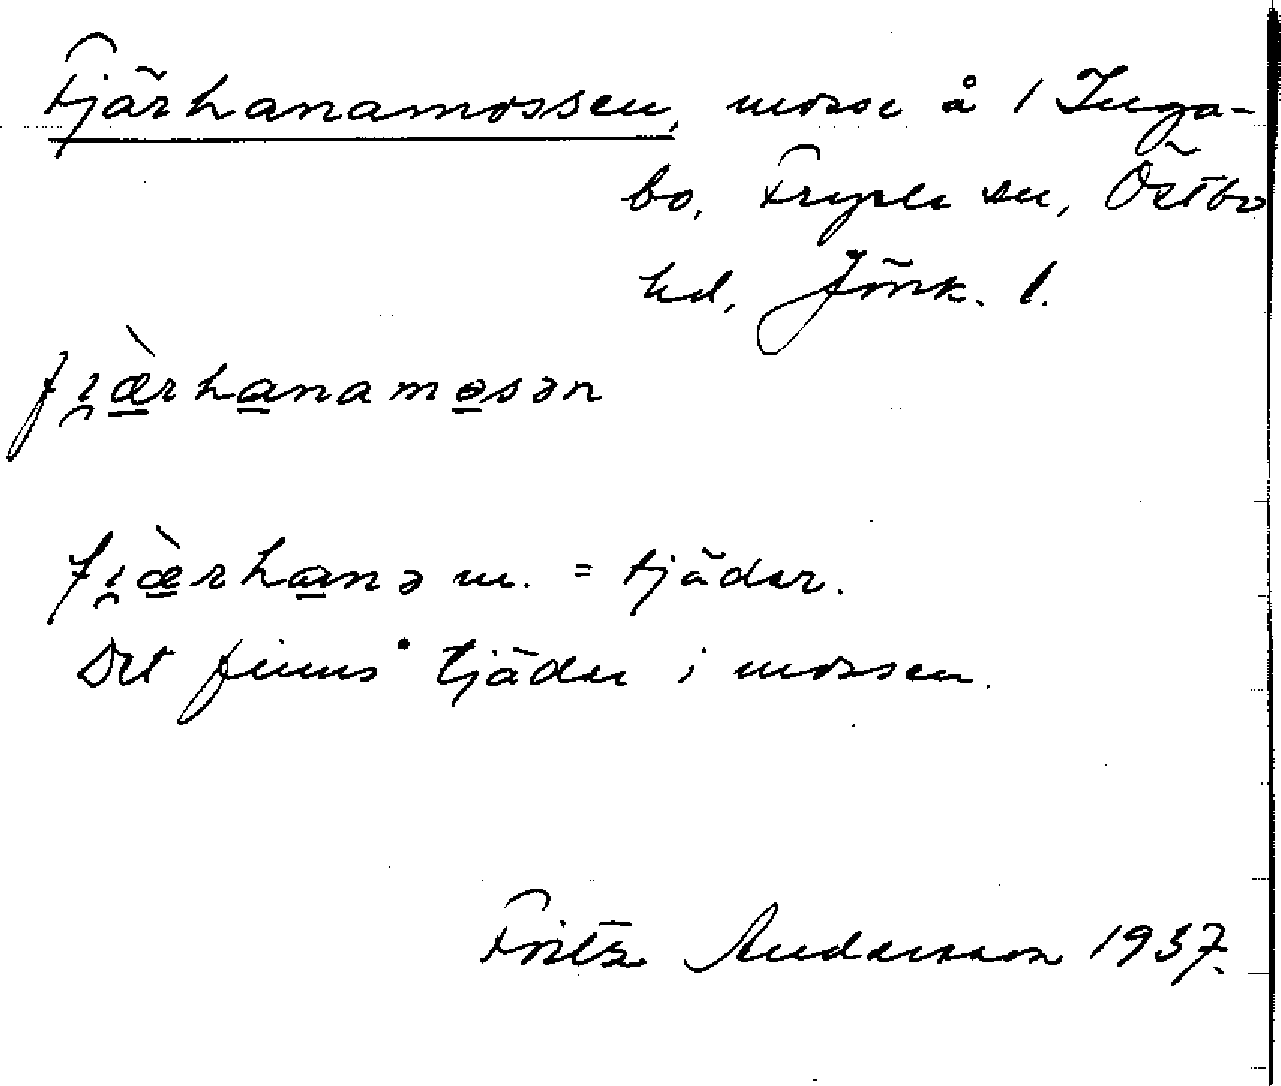 Fjärhanamossen, mosse å 1 Inga-
bo, Fryele sn, Östbo
hd, Jönk. l.
fi̯æ̀rhanamɵsən
fi̯æ̀rhanə m. = tjäder.
Det finns tjäder i mossen.
Fritz Andersson 1937.